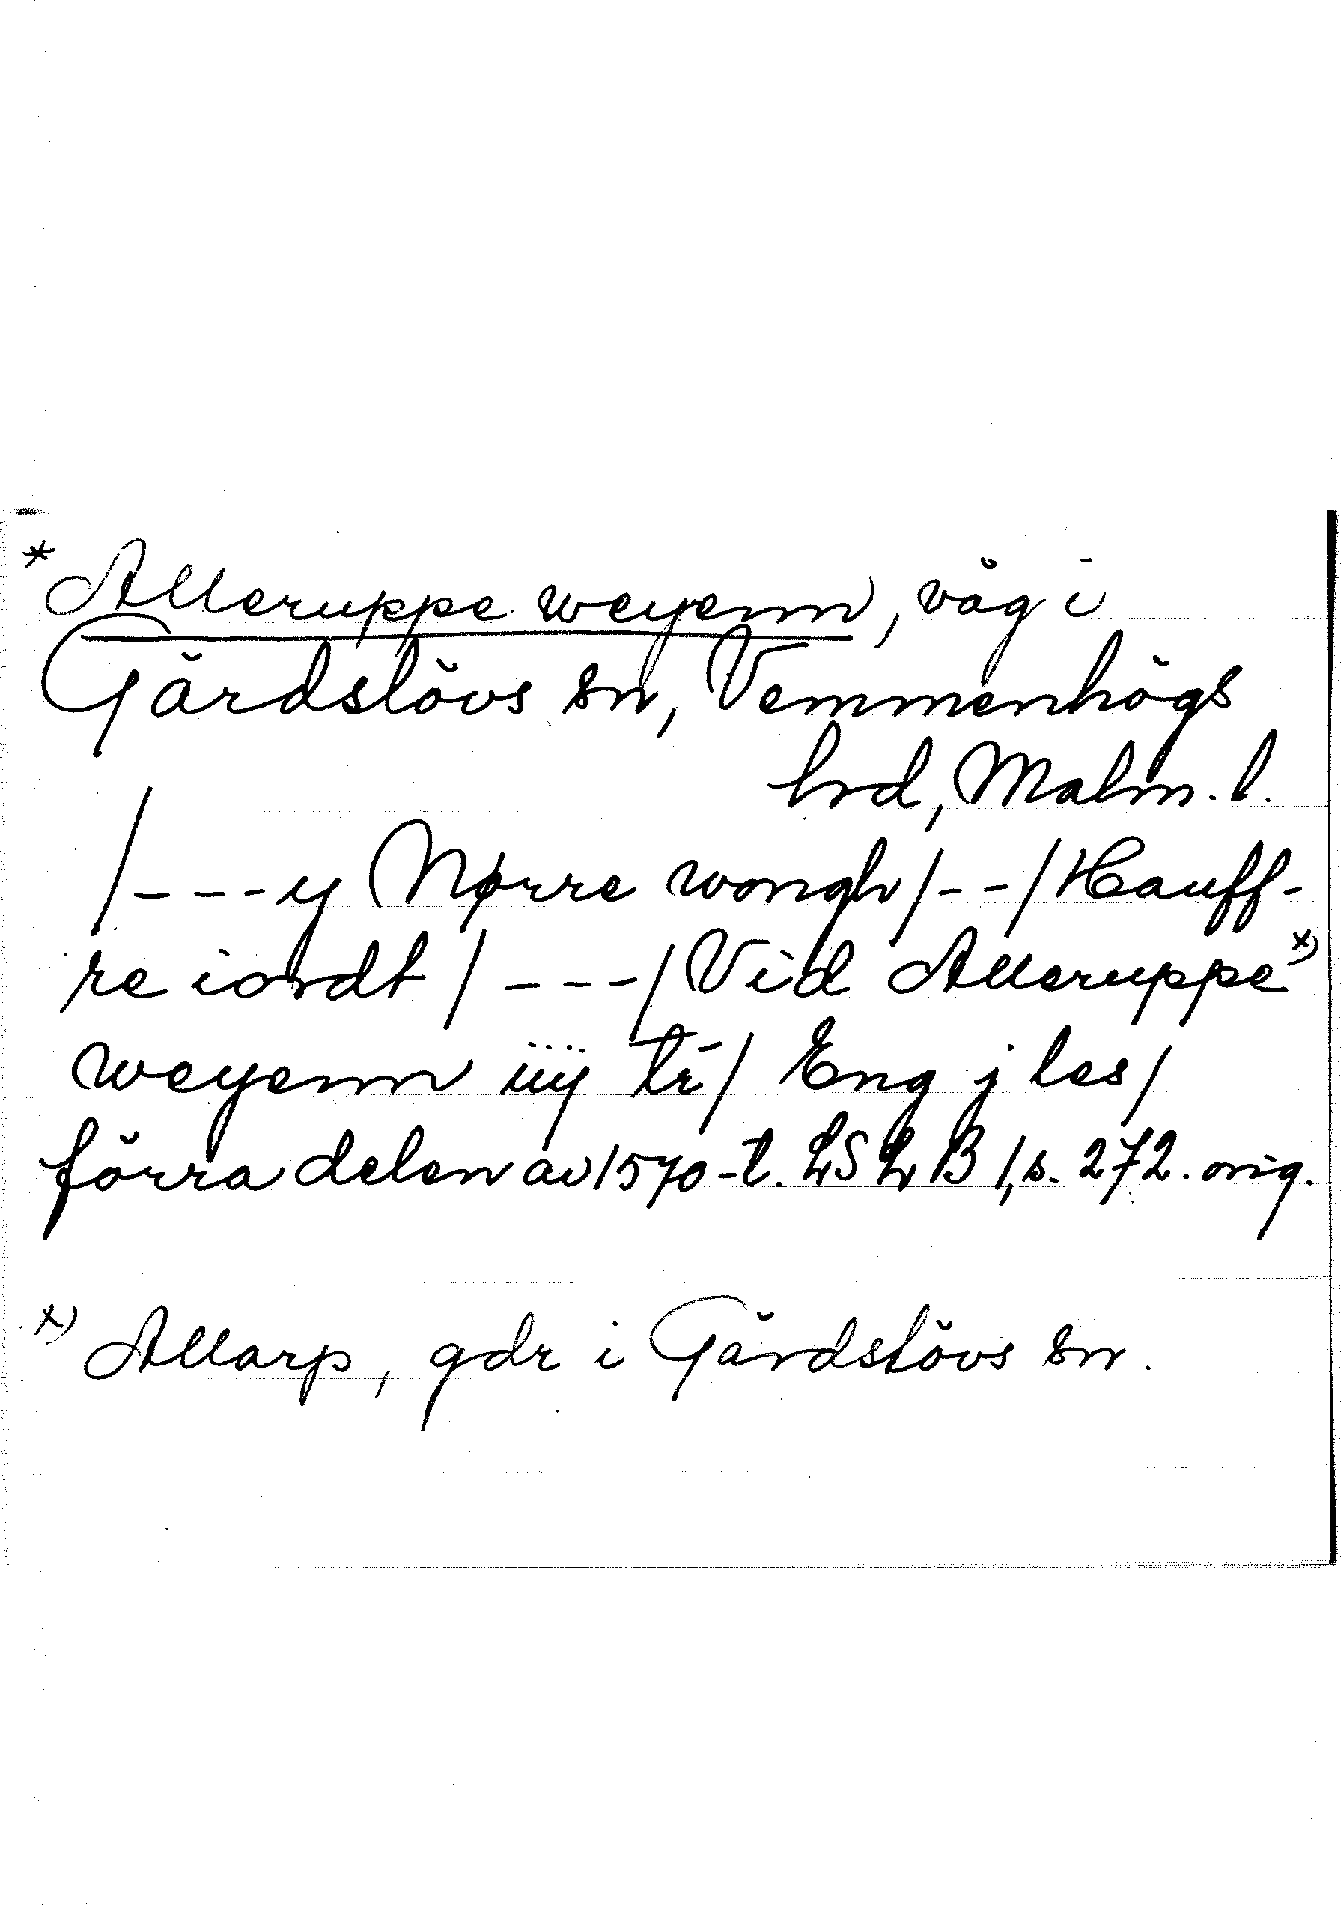 * Alleruppe weyenn, väg i
Gärdslövs sn, Vemmenhögs
hrd, Malm. l.
/---y Nørre wongh/--/Hauff-
re iordt /---/Vid Alleruppe x)
weyenn iiij tr/ Eng j les/
förra delen av 1570-t. LSLB 1, s. 272. orig.
x) Allarp, gdr i Gärdslövs sn.